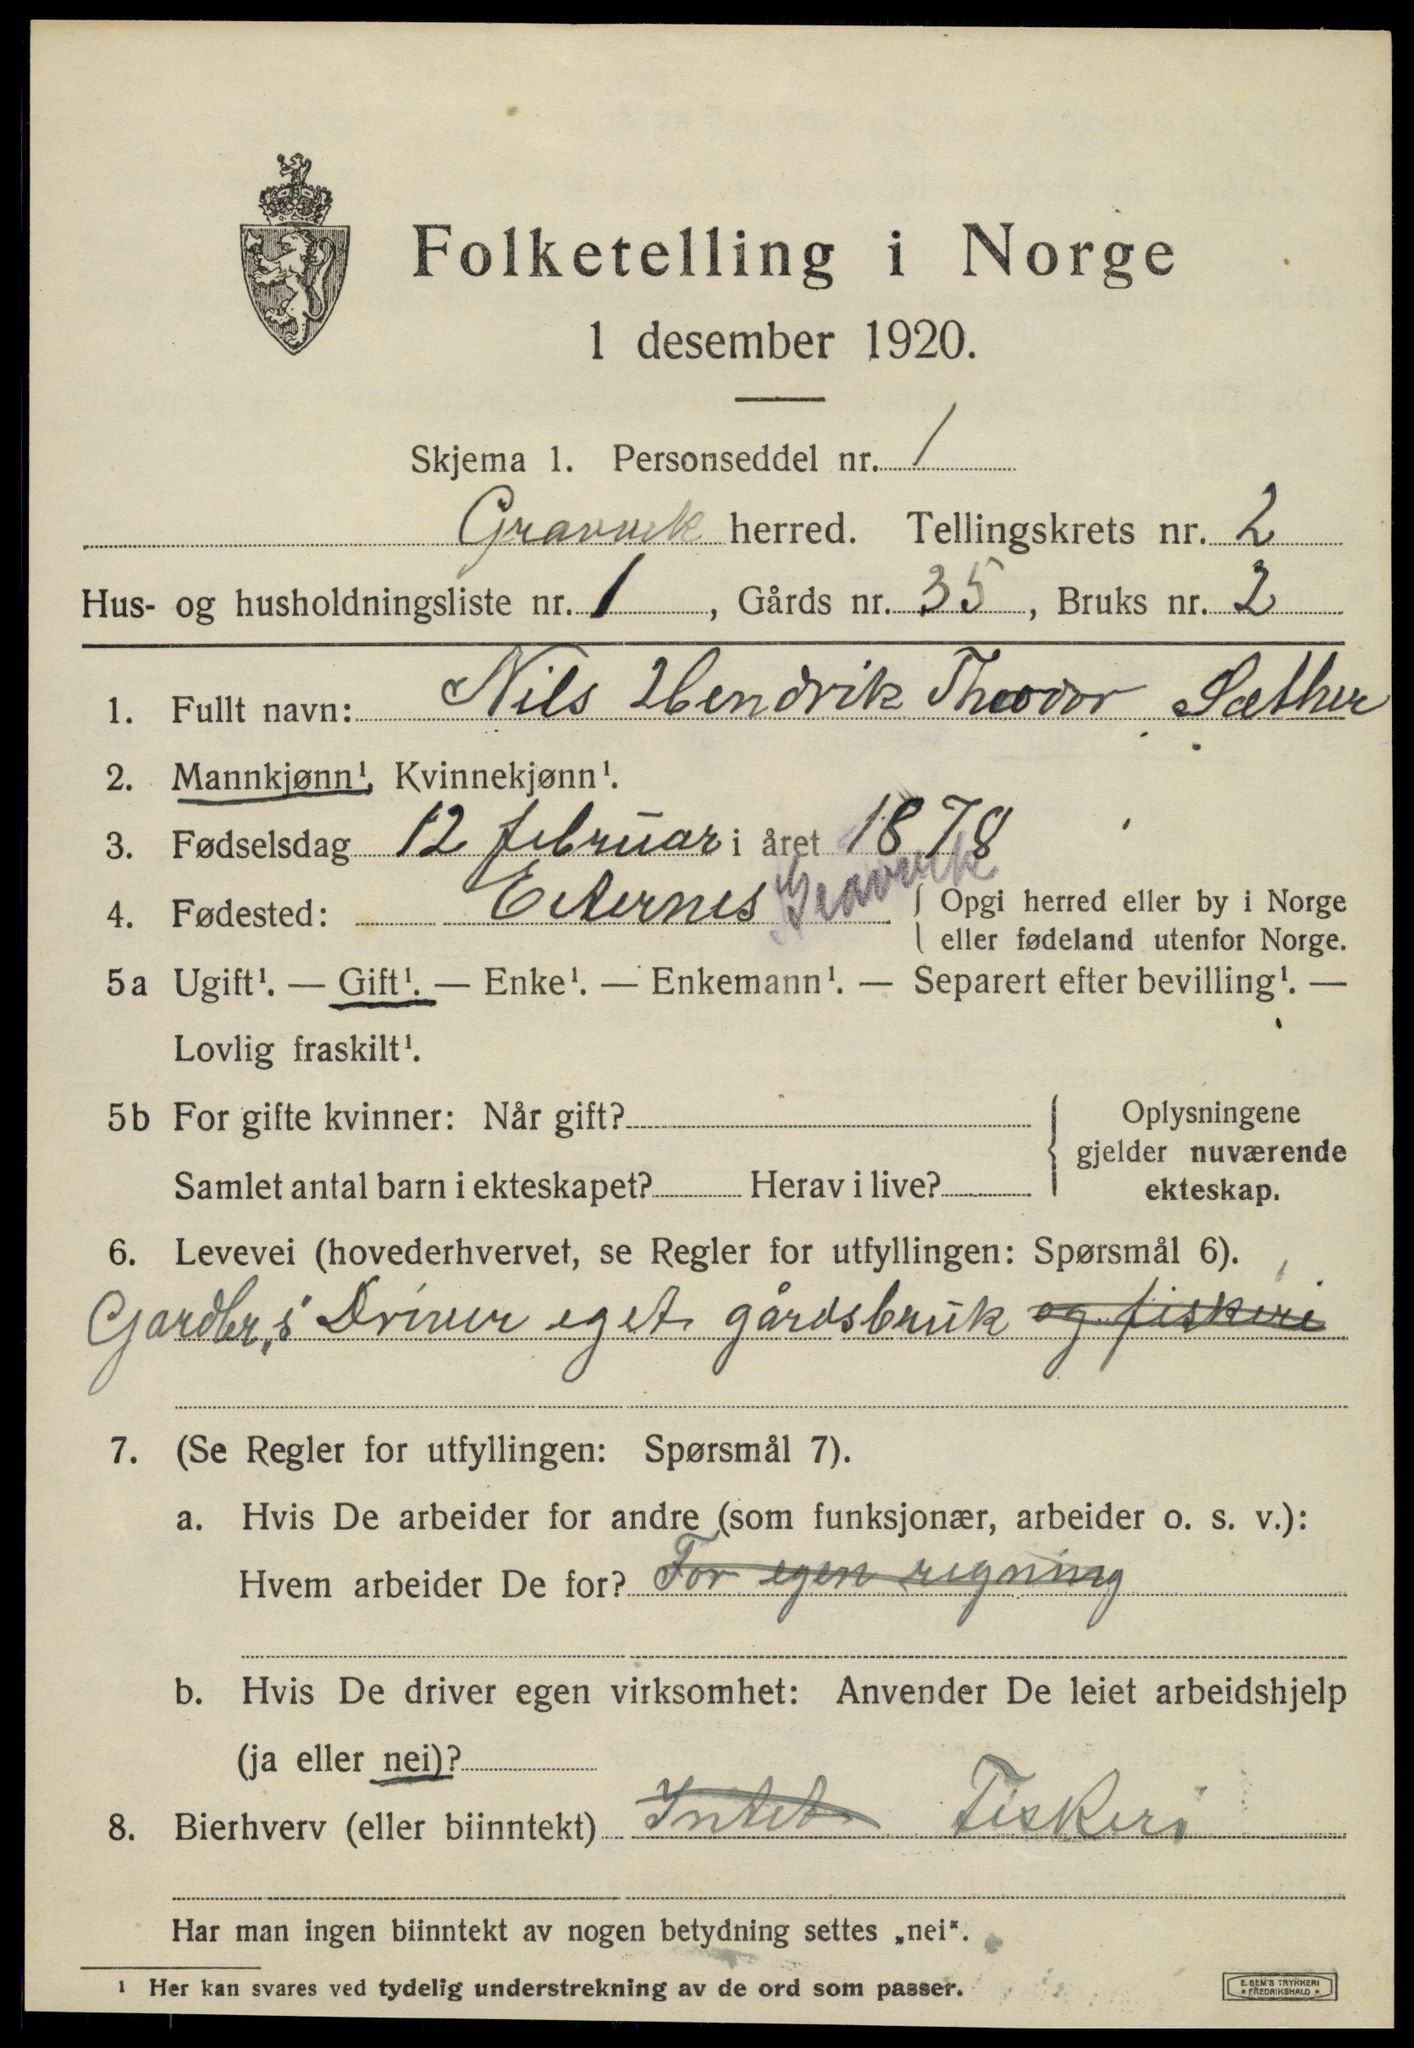 Folketelling i Norge
1 desember 1920.
Skjema 1. Personseddel nr. 1
Gravvik herred. Tellingskrets nr. 2
Hus- og husholdningsliste nr. 1, Gårds nr. 35, Bruks nr. 2
1. Fullt navn: Nils Hendrik Theodor Sæther
2. Mannkjønn¹, Kvinnekjønn¹.
3. Fødselsdag 12 februar i året 1878
4. Fødested: Eiternes Gravvik { Opgi herred eller by i Norge
eller fødeland utenfor Norge.
5a Ugift¹. — Gift¹. — Enke¹. — Enkemann¹. — Separert efter bevilling¹. —
Lovlig fraskilt¹.
5b For gifte kvinner: Når gift?
Samlet antal barn i ekteskapet? Herav i live?
Oplysningene
gjelder nuværende
ekteskap.
6. Levevei (hovederhvervet, se Regler for utfyllingen: Spørsmål 6).
Gardbr. s Driver eget gårdsbruk og fiskeri
7. (Se Regler for utfyllingen: Spørsmål 7).
a. Hvis De arbeider for andre (som funksjonær, arbeider o. s. v.):
Hvem arbeider De for? For egen regning
b. Hvis De driver egen virksomhet: Anvender De leiet arbeidshjelp
(ja eller nei)?
8. Bierhverv (eller biinntekt) Intet Fiskeri
Har man ingen biinntekt av nogen betydning settes „nei".
¹ Her kan svares ved tydelig understrekning av de ord som passer.
E. SEM'S TRYKKERI
* FREDRIKSHALD *